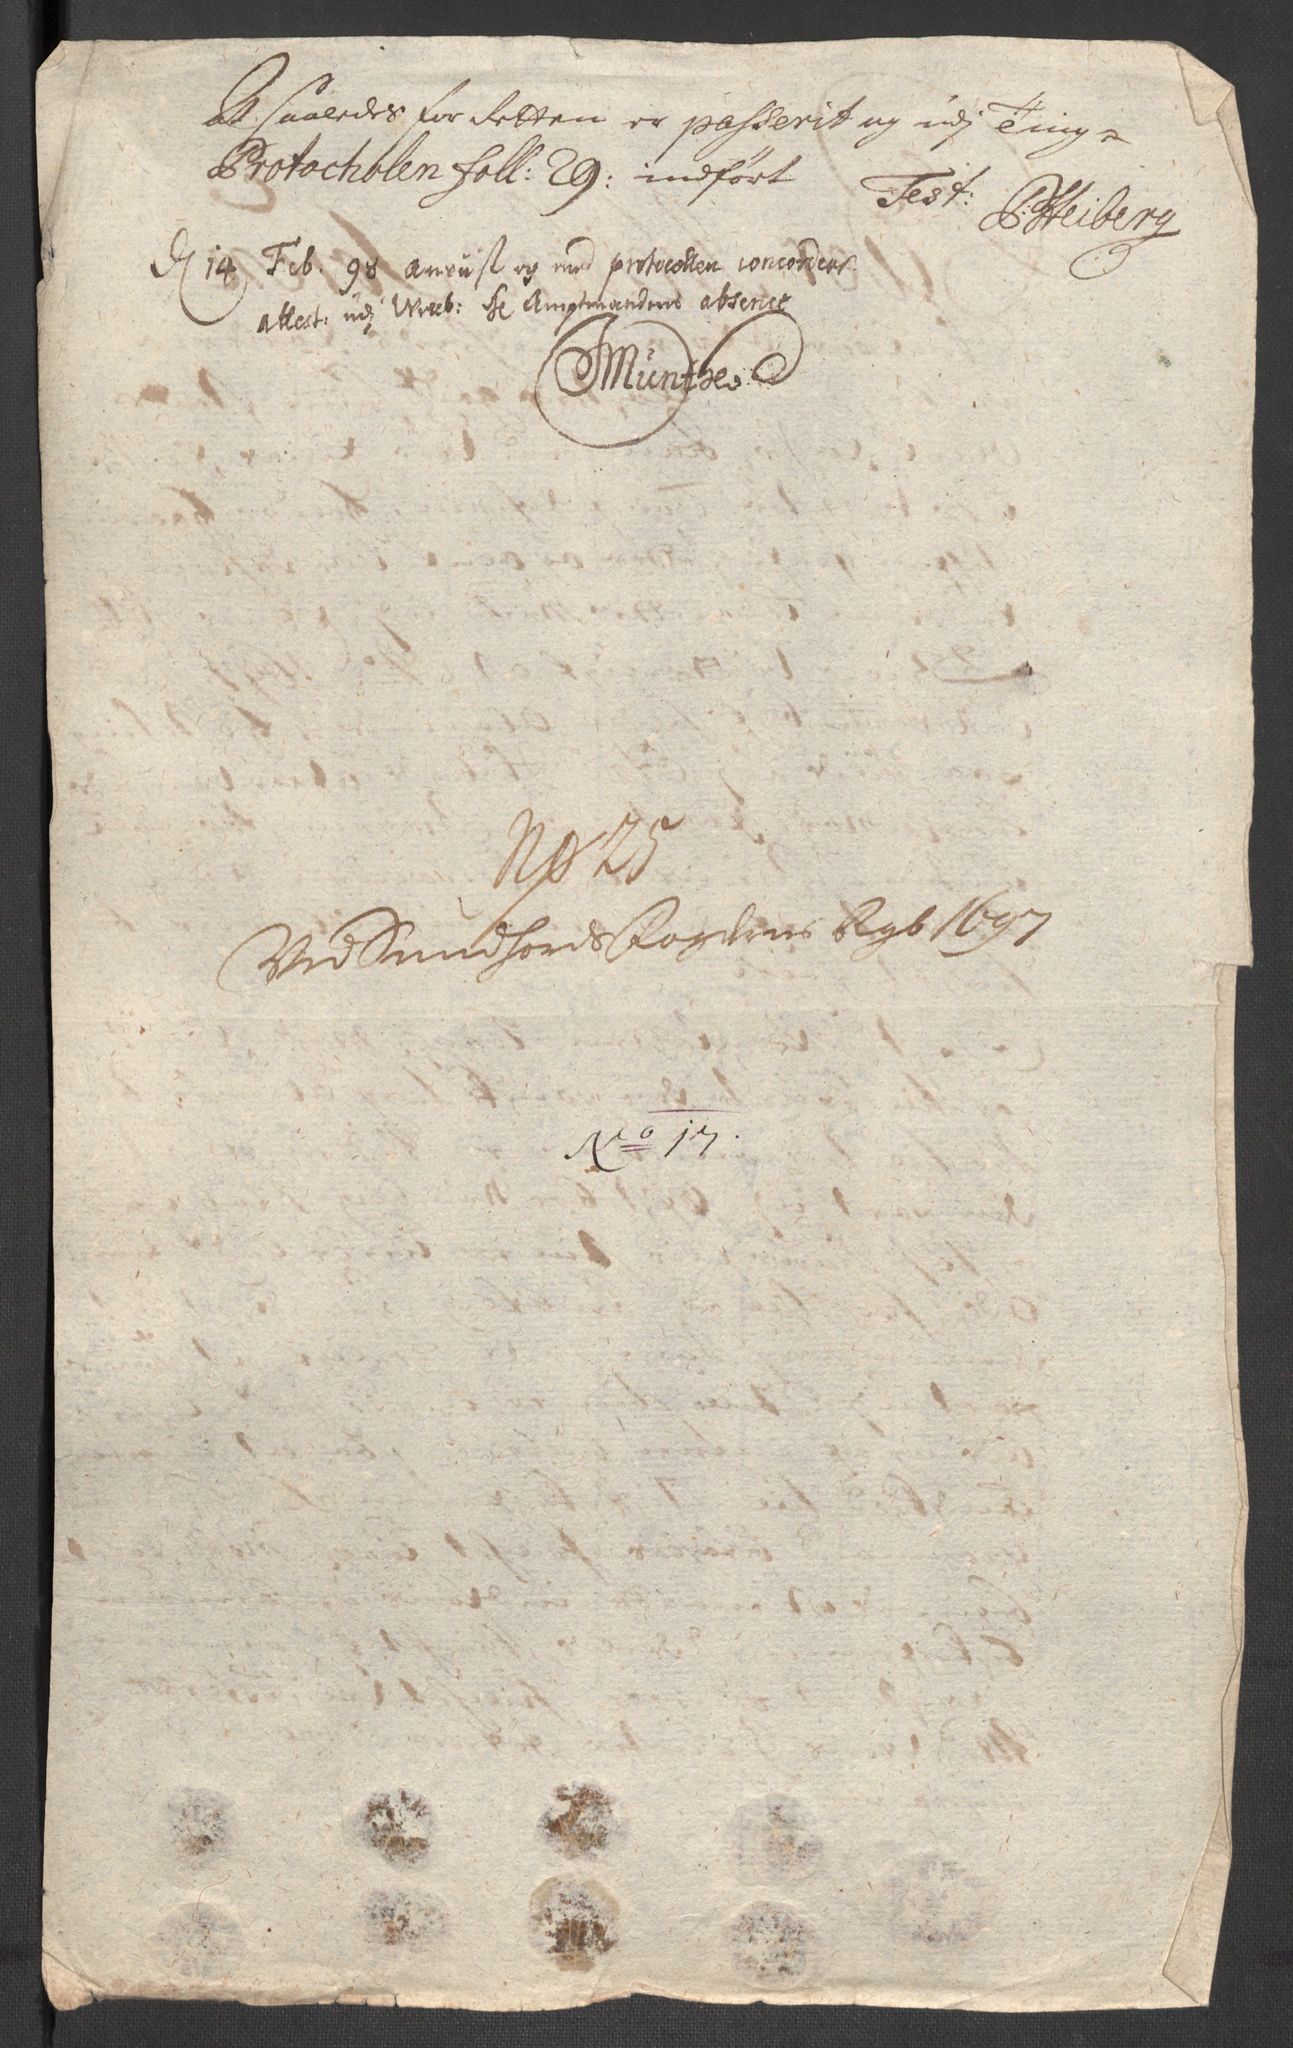 At saaledes for Retten er passerit og udj Ting-
Protocholen foll: 29: indført
Test: P: Heiberg
D 14 Feb. 98 anvist og med protocollen concorderer
attest: udj Welb: Hr Amptmandens absence
JMünthe
No 25
Ved Sundhords Fogderies Rgb 1697
No 17.